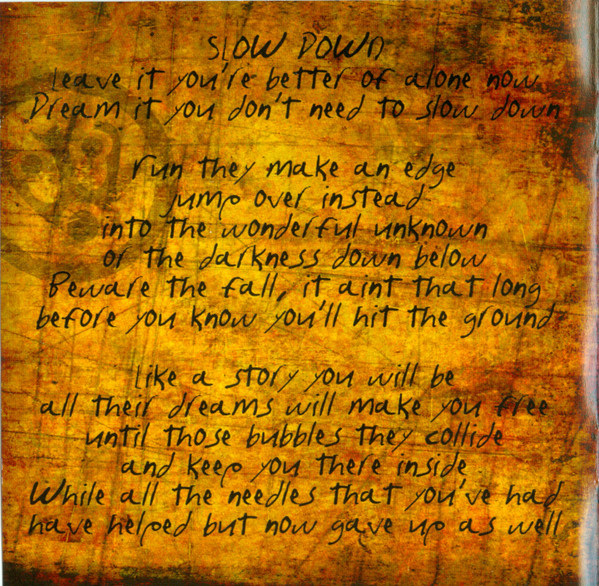 SLOW DOWN
leave it you're better of alone now
Dream it you don't need to slow down
run they make an edge
jump over instead
into the wonderful unknown
or the darkness down below
Beware the fall, it aint that long
before you know you'll hit the ground
like a story you will be
all their dreams will make you free
until those bubbles they collide
and keep you there inside
While all the needles that you've had
have helped but now gave up as well